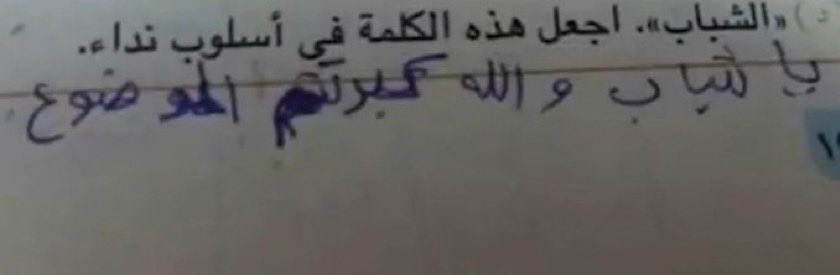 د) «الشباب». اجعل هذه الكلمة في أسلوب نداء.
يا شباب والله كبرتم الموضوع